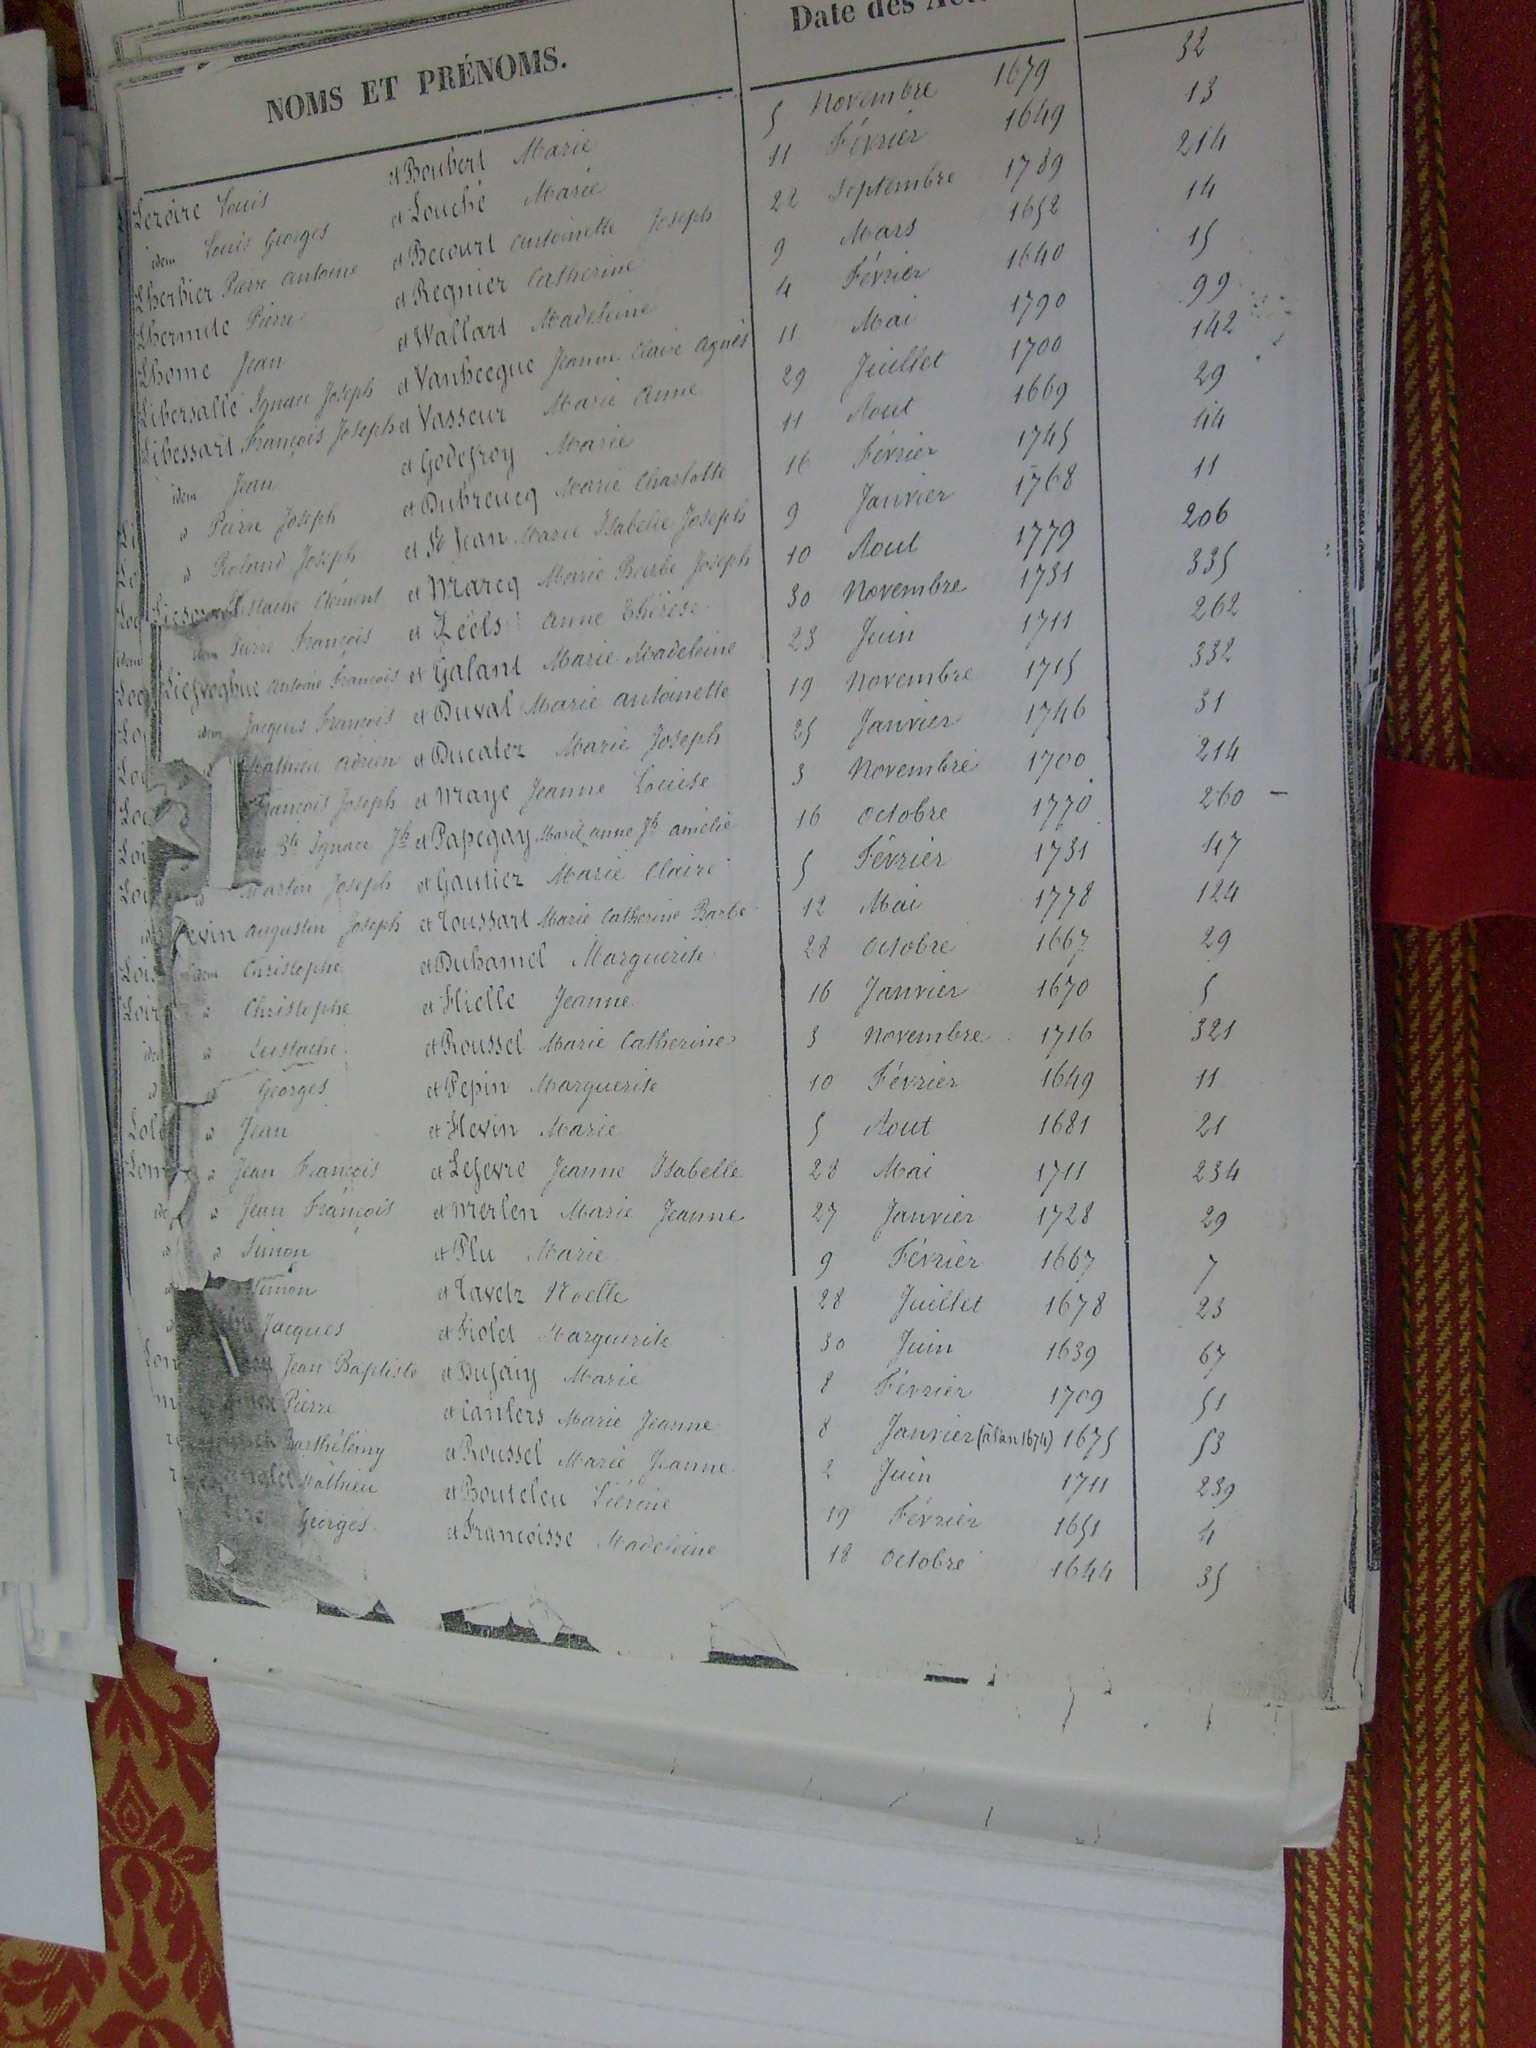 NOMS ET PRÉNOMS. Date des
Lezoire Louis et Boubert Marie 5 Novembre 1679 32
idem Louis Georges et Louché Marie 11 Février 1649 13
Lherbier Pierre Antoine et Becourt Antoinette Joseph 22 Septembre 1789 214
Lhermite Pierre et Regnier Catherine 9 Mars 1652 14
Lhome Jean et Wallart Madeleine 4 Février 1640 15
Libersalle Ignace Joseph et Vanhecque Jeanne Claire Agnès 11 Mai 1790 99
Libessart François Joseph et Vasseur Marie Anne 29 Juillet 1700 142
idem Jean et Godefroy Marie 11 Aout 1669 29
d Pierre Joseph et Dubreucq Marie Charlotte 16 Février 1745 44
d Roland Joseph et St Jean Marie Isabelle Joseph 9 Janvier 1768 11
Eustache Clément et Marcq Marie Barbe Joseph 10 Aout 1779 206
idem Pierre François et Zéels Anne Thérèse 30 Novembre 1731 335
Liefveghue Antoine François et Galant Marie Madeleine 23 Juin 1711 262
idem Jacques François et Duval Marie Antoinette 19 Novembre 1715 332
d Mathieu Adrien et Ducatez Marie Joseph 25 Janvier 1746 31
François Joseph et Maye Jeanne Louise 3 Novembre 1700 214
Bte Ignace Jh et Papegay Marie Anne Jh Amélie 16 Octobre 1770 260 -
d Martin Joseph et Gautiez Marie Claire 5 Février 1731 47
evin Augustin Joseph et Toussart Marie Catherine Barbe 12 Mai 1778 124
idem Christophe et Duhamel Marguerite 28 Octobre 1667 29
d Christophe et Hielle Jeanne 16 Janvier 1670 5
d Eustache et Roussel Marie Catherine 3 Novembre 1716 321
d Georges et Pepin Marguerite 10 Février 1649 11
d Jean et Hevin Marie 5 Aout 1681 21
d Jean François et Lefevre Jeanne Isabelle 28 Mai 1711 234
d Jean François et Merlen Marie Jeanne 27 Janvier 1728 29
d Simon et Plu Marie 9 Février 1667 7
Simon et Tavetz Noelle 28 Juillet 1678 23
Jacques et Fiolet Marguerite 30 Juin 1639 67
Jean Baptiste et Dufaiy Marie 8 Février 1709 51
Pierre et Canlers Marie Jeanne 8 Janvier (à l'an 1674) 1675 53
Barthélemy et Roussel Marie Jeanne 2 Juin 1711 239
Mathieu et Bouteleu 19 Février 1651 4
Georges et Francoisse Madeleine 18 Octobre 1644 35